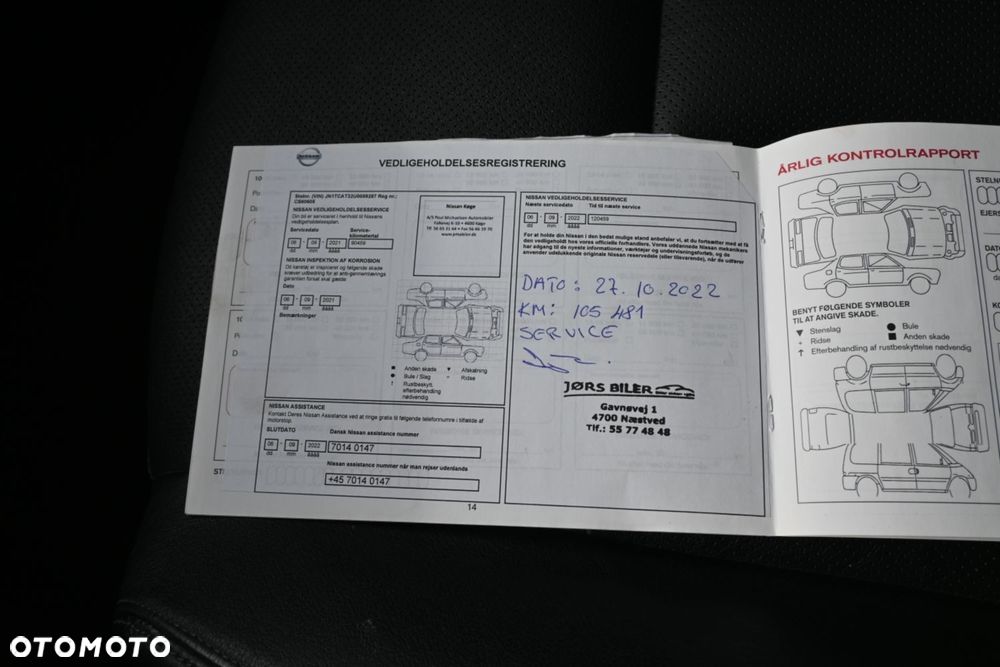 VEDLIGEHOLDELSESREGISTRERING
Stelnr. (VIN) JN1TCAT32U0
Reg nr.:
NISSAN VEDLIGEHOLDELSESSERVICE
Din bil er serviceret i henhold til Nissans
vedligeholdelsesplan.
Servicedato
Service-
kilometertal
2021
90459
dd
mm
åååå
NISSAN INSPEKTION AF KORROSION
Dato
06
09
2021
dd
mm
åååå
Bemærkninger
Nissan Køge
A/S Poul Michelsen Automobiler
4600 Køge
Anden skade
Afskalning
Bule / Slag
Ridse
Rustbeskytt.
efterbehandling
nødvendig
NISSAN ASSISTANCE
Kontakt Deres Nissan Assistance ved at ringe gratis til følgende telefonnumre i tilfælde af
motorstop.
SLUTDATO
Dansk Nissan assistance nummer
06
09
2022
7014 0147
dd
mm
åååå
Nissan assistance nummer når man rejser udenlands
+45 7014 0147
14
NISSAN VEDLIGEHOLDELSESSERVICE
Næste servicedato
Tid til næste service
06
09
2022
120459
dd
mm
åååå
For at holde din Nissan i den bedst mulige stand anbefaler vi, at du fortsætter med at få
den vedligeholdt hos vores officielle forhandlere. Vores uddannede Nissan mekanikere
har adgang til de nyeste informationer, værktøjer og undervisningsforløb, og de
anvender udelukkende originale Nissan reservedele (eller tilsvarende), når de udfører
DATO: 27.10.2022
KM: 105 481
SERVICE
JØRS BILER
Gavnøvej 1
4700 Næstved
Tlf.: 55 77 48 48
ÅRLIG KONTROLRAPPORT
BENYT FØLGENDE SYMBOLER
TIL AT ANGIVE SKADE.
Stenslag
Bule
Ridse
Anden skade
Efterbehandling af rustbeskyttelse nødvendig
STELN
EJERS
DAT
OTOMOTO